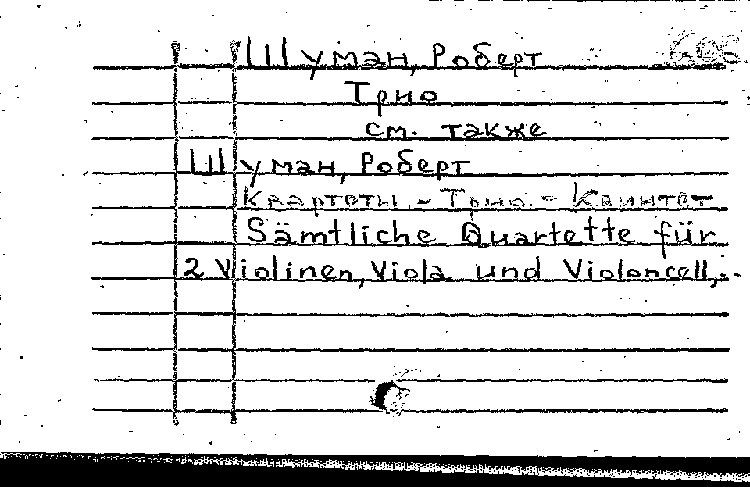 Шуман, Роберт
Трио
см. также
Шуман, Роберт
Квартеты - Трио - Квинтет
Sämtliche Quartette für
2 Violinen, Viola und Violoncell,..